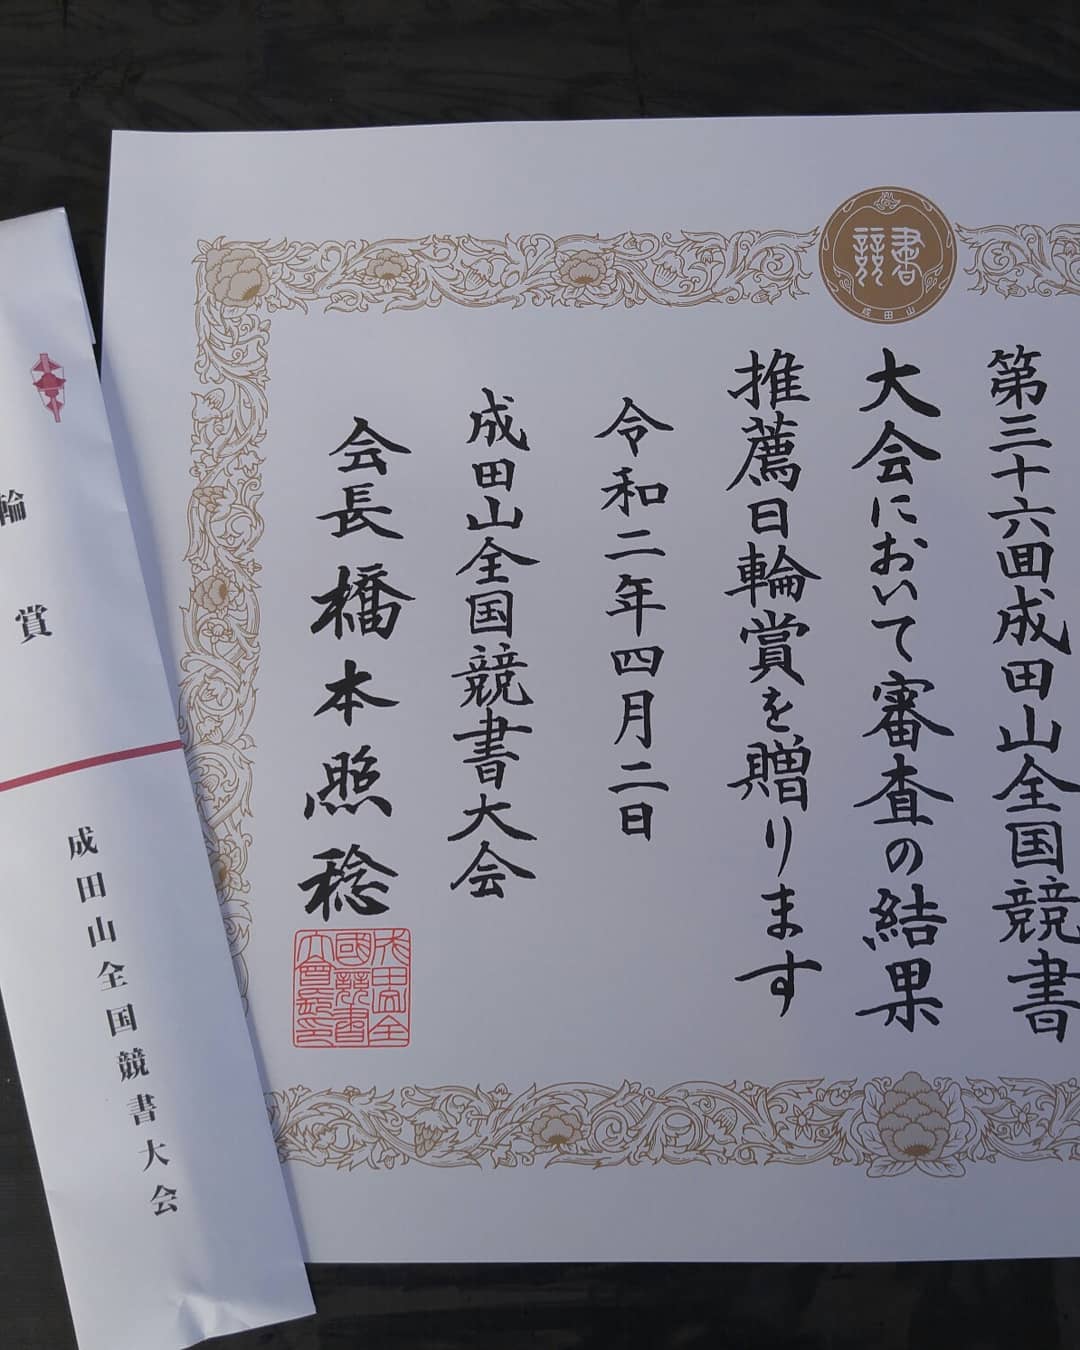 競書
成田山
第三十六回成田山全国競書
大会において審査の結果
推薦日輪賞を贈ります
令和二年四月二日
成田山全国競書大会
会長 橋本照稔
成田山全
國競書
大會長印
輪賞
成田山全国競書大会